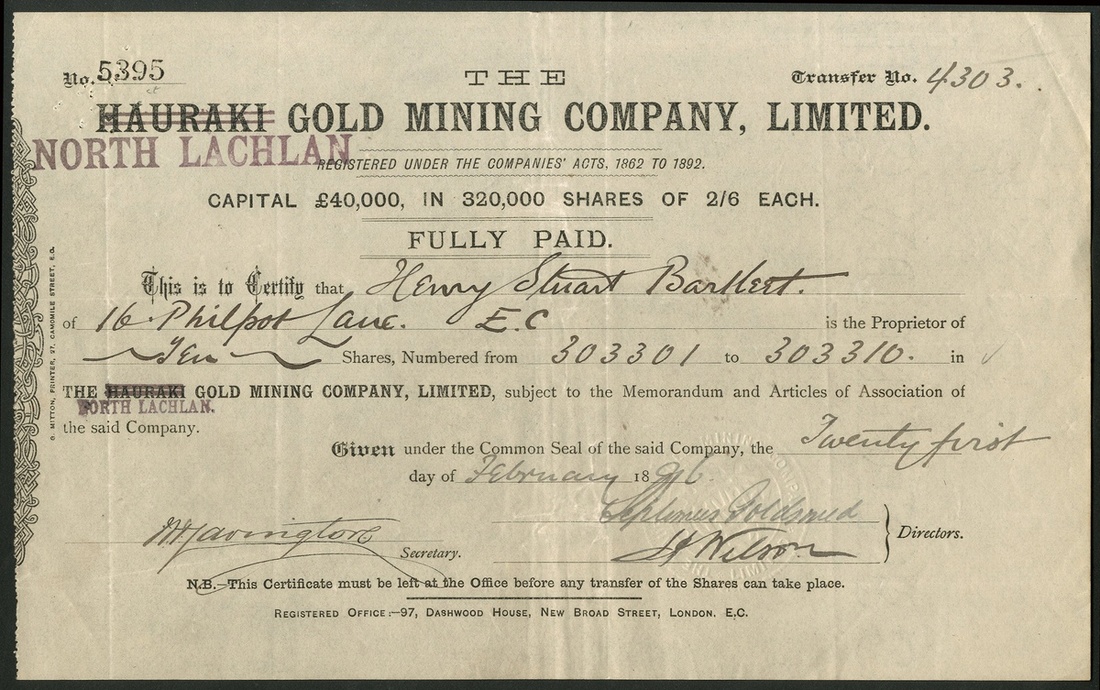 No. 5395 THE Transfer No. 4303.
HAURAKI GOLD MINING COMPANY, LIMITED.
NORTH LACHLAN
REGISTERED UNDER THE COMPANIES' ACTS, 1862 TO 1892.
CAPITAL £40,000, IN 320,000 SHARES OF 2/6 EACH.
FULLY PAID.
This is to Certify that Henry Stuart Bartlert.
of 16 Philpot Lane. E.C is the Proprietor of
Ten Shares, Numbered from 303301 to 303310. in
THE HAURAKI GOLD MINING COMPANY, LIMITED, subject to the Memorandum and Articles of Association of
NORTH LACHLAN.
the said Company.
Given under the Common Seal of the said Company, the Twenty first
day of February 1896.
Septimus Goldsmid
Secretary. J H Wilson Directors.
N.B.—This Certificate must be left at the Office before any transfer of the Shares can take place.
REGISTERED OFFICE:—97, DASHWOOD HOUSE, NEW BROAD STREET, LONDON. E.C.
G. MITTON, PRINTER, 27, CAMOMILE STREET, E.C.